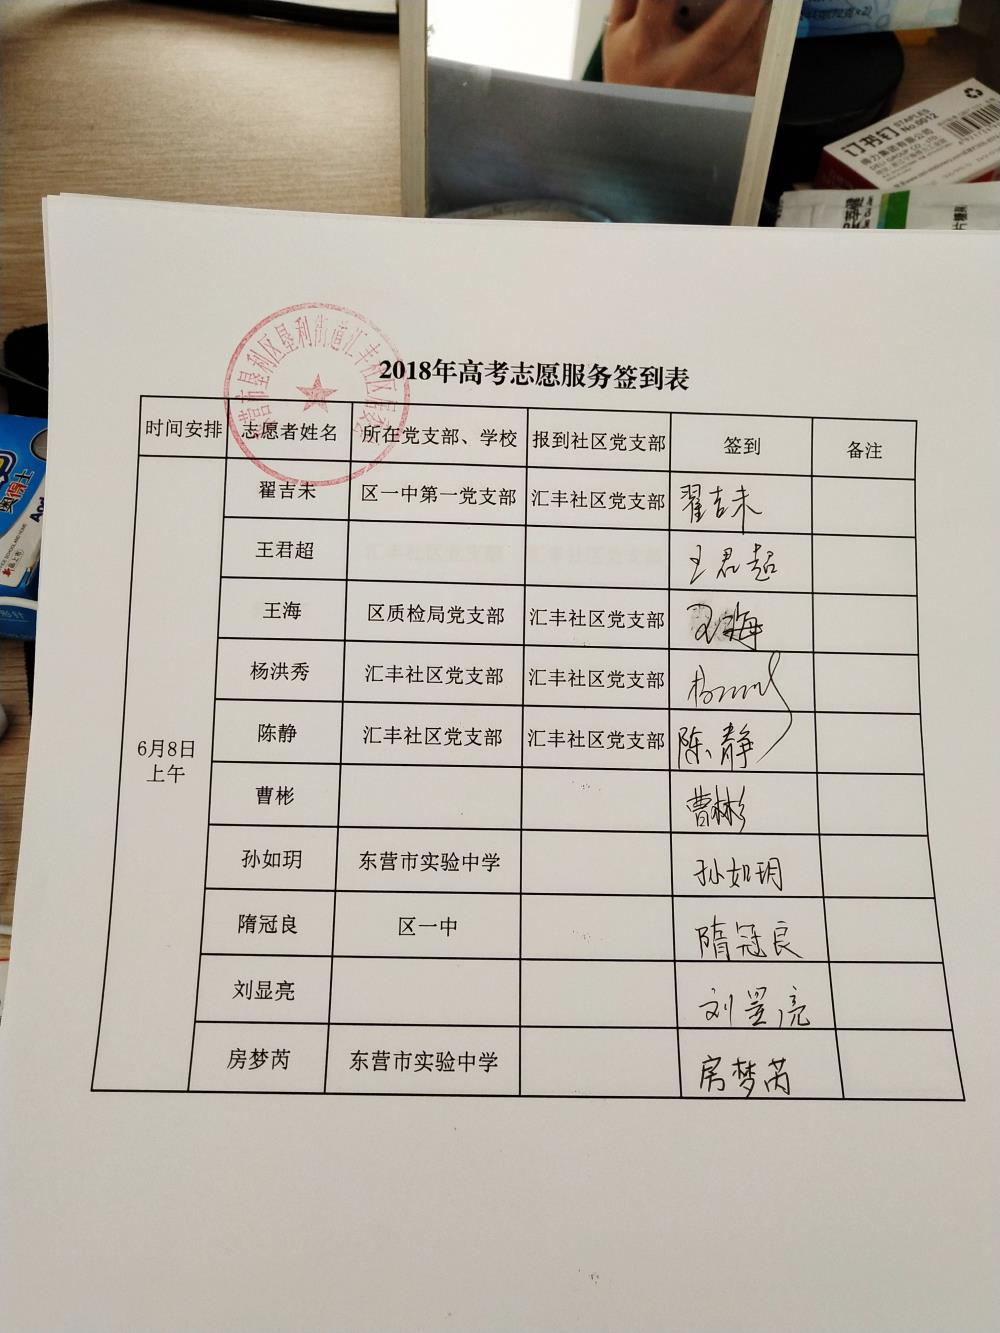 订书钉
STAPLES
No.0012
得力集团有限公司
DELI GROUP CO., LTD.
2018年高考志愿服务签到表
时间安排 志愿者姓名 所在党支部、学校 报到社区党支部 签到 备注
6月8日上午
翟吉未 区一中第一党支部 汇丰社区党支部 翟吉未
王君超 王君超
王海 区质检局党支部 汇丰社区党支部 王海
杨洪秀 汇丰社区党支部 汇丰社区党支部
陈静 汇丰社区党支部 汇丰社区党支部 陈静
曹彬 曹彬
孙如玥 东营市实验中学 孙如玥
隋冠良 区一中 隋冠良
刘显亮 刘显亮
房梦芮 东营市实验中学 房梦芮